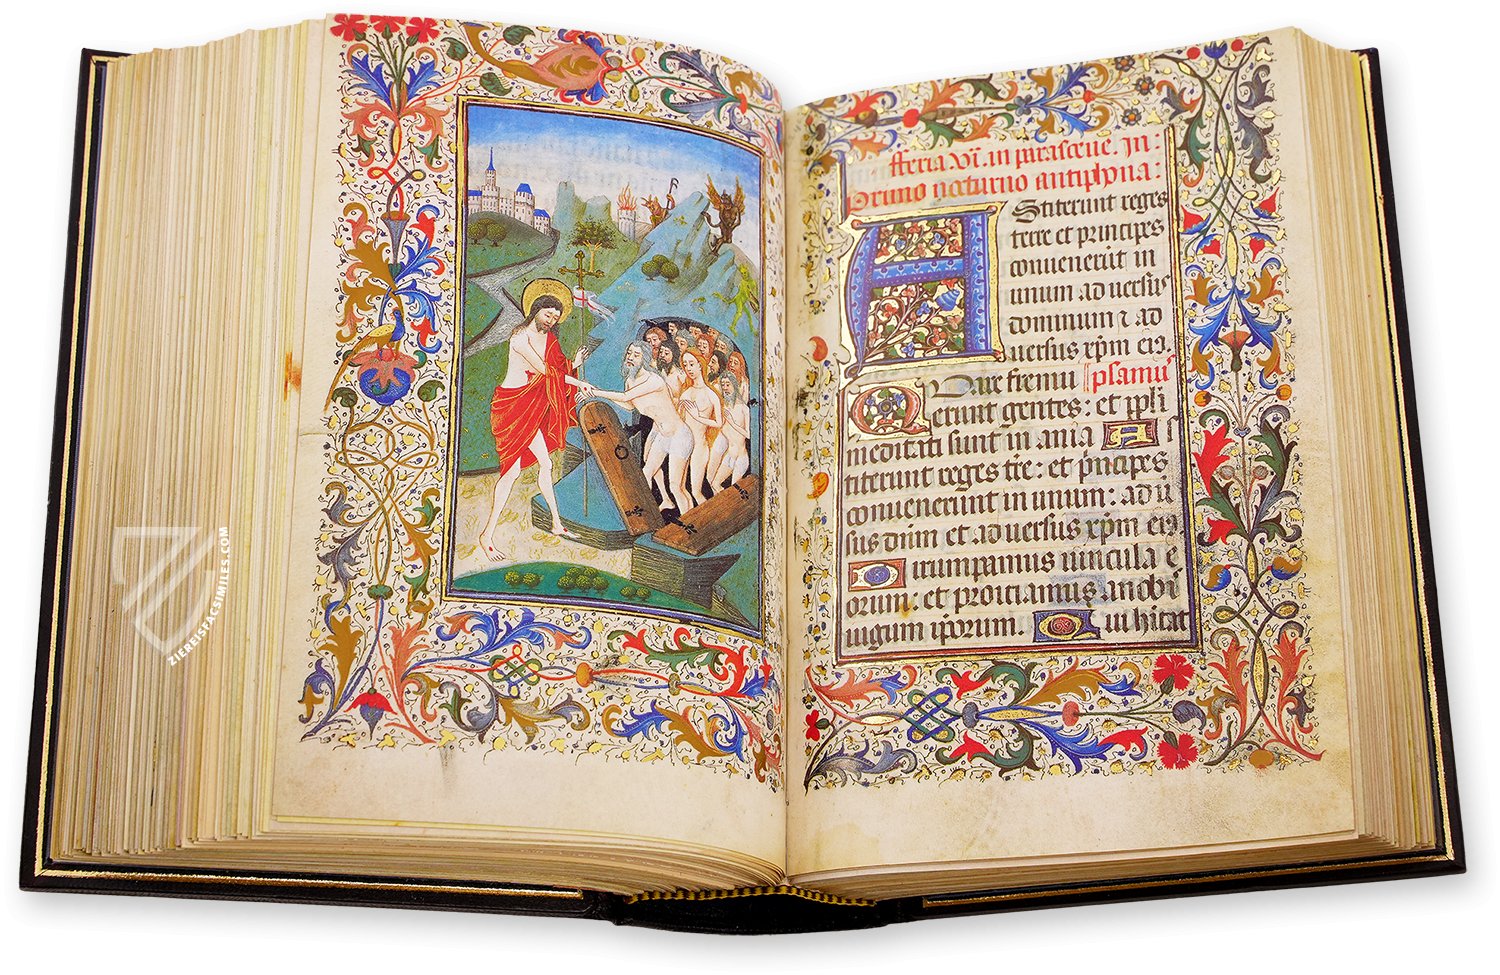 ZIEREISFACSIMILES.COM
fferia vi. in parasceue. In:
primo nocturno antiphona:
Astiterunt reges
terre et principes
conuenerūt in
unum aduersus
dominum ⁊ ad
uersus xp̄m eiꝰ.
Quare fremu psamꝰ
erunt gentes: et ppl̄i
meditati sunt in ania As
titerunt reges tr̄e: et p̄ncipes
conuenerunt in unum: adū
sus dn̄um et aduersus xp̄m eiꝰ
Dirumpamus uincula e
orum: et proiciamus a nobi
iuigum ip̄orum. Qui hītat